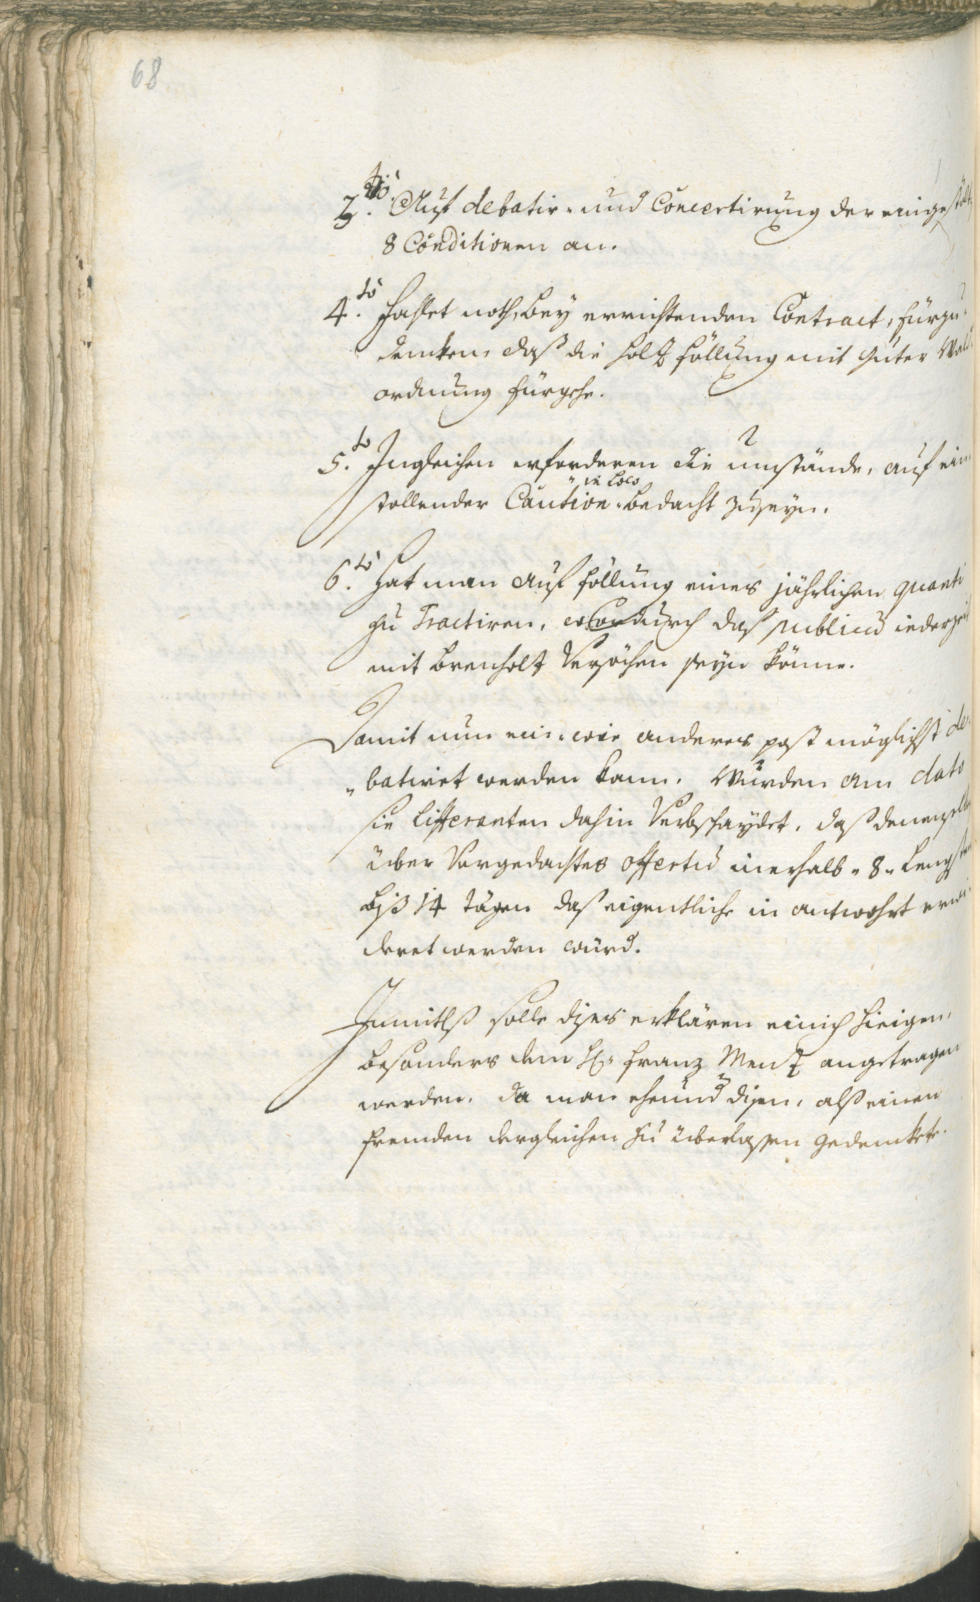 68
3tiò. Auf debatir- und Concertirung der eingestölt
8 Conditionen an.
4tò. Hafftet noth, bey errichtenden Contract, fürzu
dencken, daß die Holtz föllung mit guter Wald
ordnung fürgehe.
5tò. Ingleichen erforderen die umstände, auf ein
in Loco
stollender Caution bedacht zuseyn.
6tò. Hat man auf föllung eines jährlichen quanti
zu Tractiren, wordurch daß publicu iederzeit
mit brenholtz Versöchen seyn könne.
Damit nun ein- wie anderes post möglichst de-
batiret werden kann. Wurden am dato
die Lifferanten dahin Verbschaydet, daß denenselben
über Vorgedachtes offertu inerhalb 8 Lengstens
biß 14 tägen daß eigentliche in antwohrt erwi-
deret werden würd.
Inmitlß solle dises erklären einich hieigen,
besonders dem H: Franz Mentz angetragen
werden, da man eheund disen, alß einen
fremden dergleichen zu überlassen gedenckete.